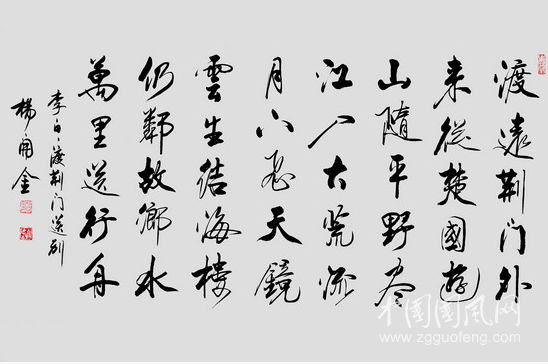 渡遠荆门外
来從楚國遊
山隨平野尽
江入大荒流
月下飛天鏡
雲生结海樓
仍鄰故鄉水
萬里送行舟
李白渡荆门送别
楊金
中国国风网
www.zgguofeng.com